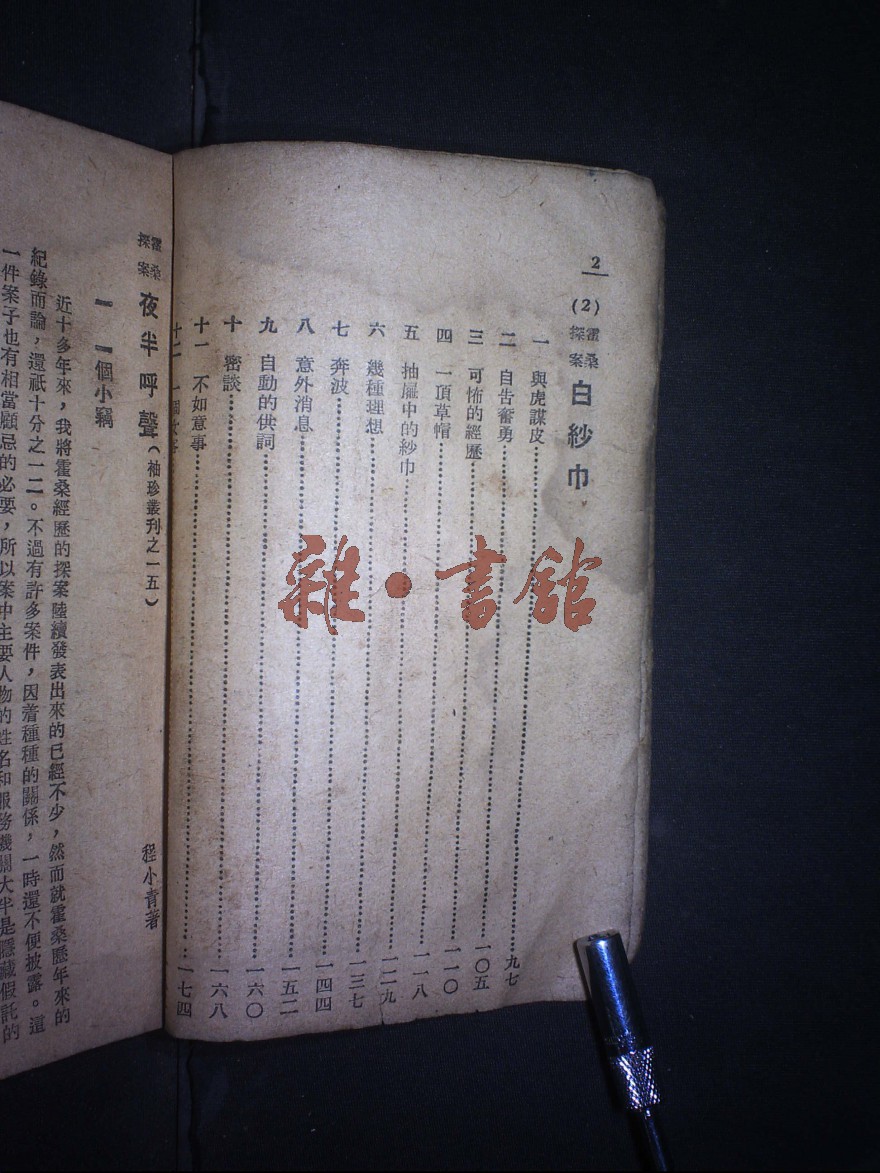 2
(2) 霍桑探案 白紗巾
一 與虎謀皮……九七
二 自告奮勇……一〇五
三 可怖的經歷……一一〇
四 一頂草帽……一一八
五 抽屜中的紗巾……一二九
六 幾種理想……一三七
七 奔波……一四四
八 意外消息……一五二
九 自動的供詞……一六〇
十 密談……一六八
十一 不如意事……一七四
十二 一個
霍桑探案 夜半呼聲(袖珍叢刊之一五) 程小青著
一 一個小竊
近十多年來,我將霍桑經歷的探案陸續發表出來的已經不少,然而就霍桑歷年來的
紀錄而論,還祇十分之一二。不過有許多案件,因着種種的關係,一時還不便披露。這
一件案子也有相當顧忌的必要,所以案中主要人物的姓名和服務機關大半是隱藏假託的
雜·書館